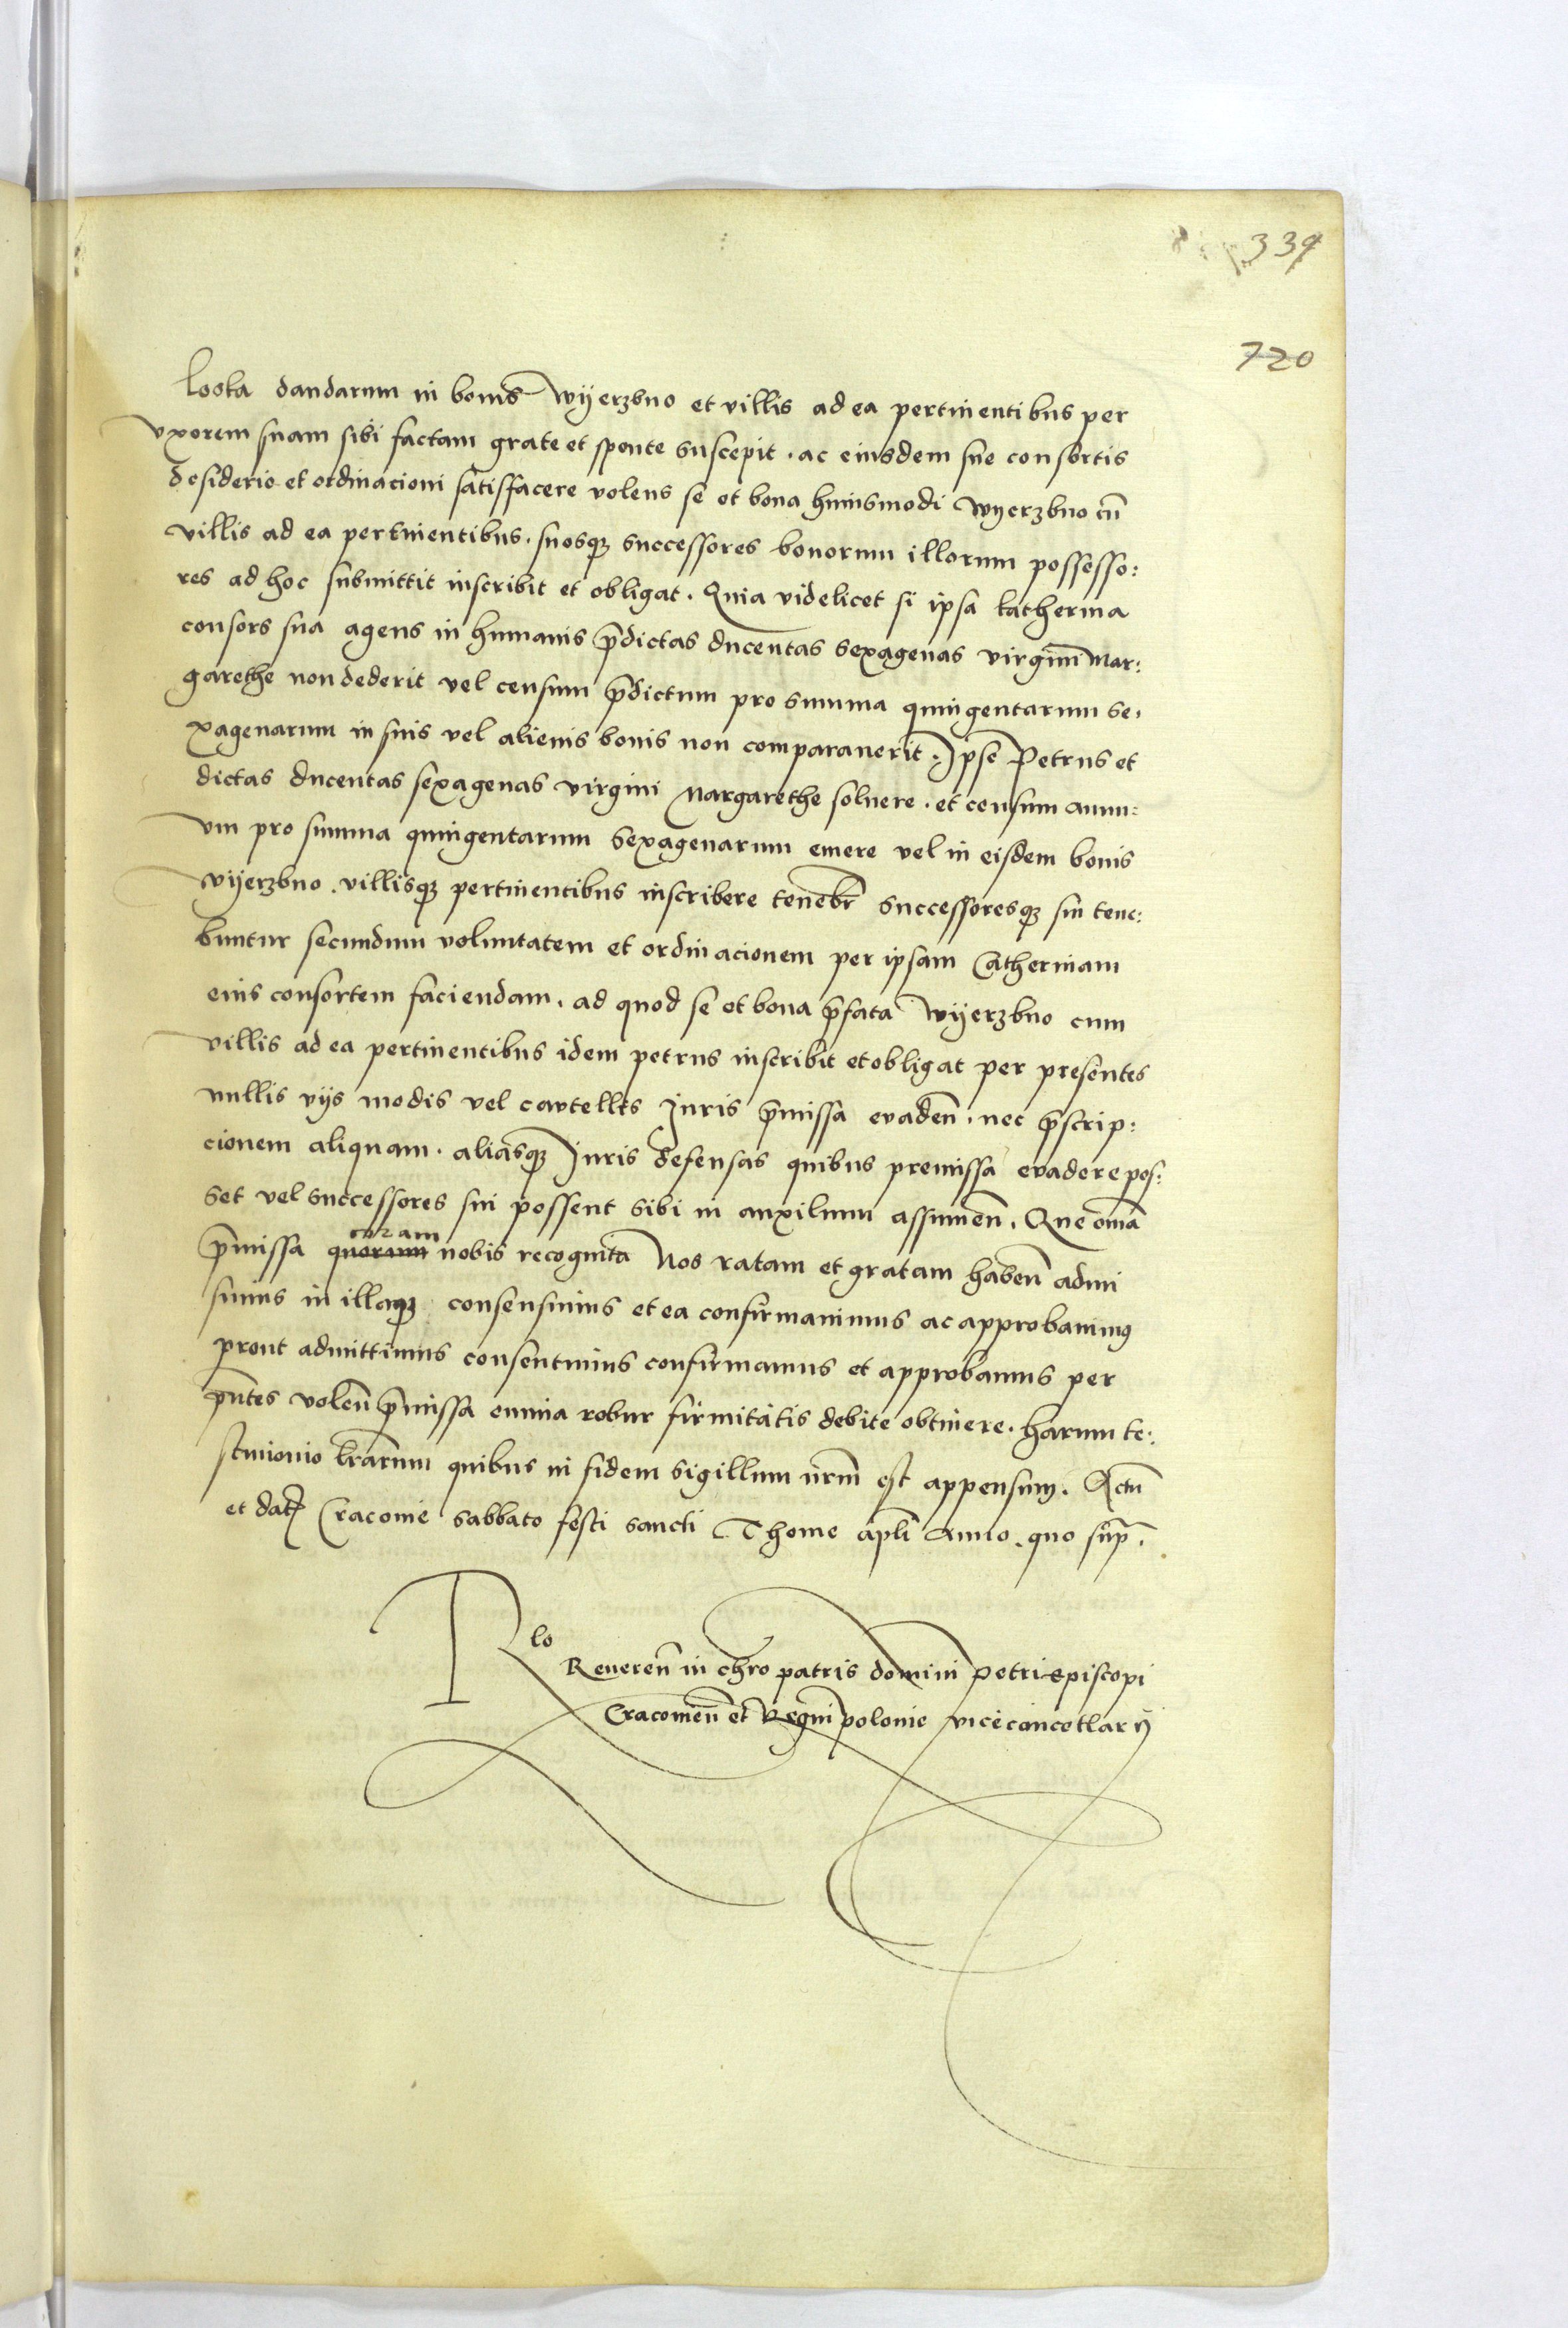 339
720
loota dandarum in bonis Wyerzbno et villis ad ea pertinentibus per
vxorem suam sibi factam grate et sponte suscepit . ac eiusdem sue consortis
desiderio et ordinacioni satisfacere volens se et bona huiusmodi Wyerzbno cū
villis ad ea pertinentibus . suosqꝫ successores bonorum illorum possesso:
res ad hoc submittit inscribit et obligat . Quia videlicet si ipsa katherina
consors sua agens in humanis p̄dictas ducentas sexagenas virgini Mar:
garethe non dederit vel censum p̄dictum pro summa quingentarum se.
xagenarum in suis vel alienis bonis non comparauerit . Ipse Petrus et
dictas ducentas sexagenas virgini Margarethe soluere . et censum annu:
um pro summa quingentarum sexagenarum emere vel in eisdem bonis
Wyerzbno . villisqꝫ pertinentibus inscribere tenebr̄ successoresqꝫ sui tene:
buntur secundum voluntatem et ordinacionem per ipsam Catherinam
eius consortem faciendam . ad quod se et bona p̄fata Wyerzbno cum
villis ad ea pertinentibus idem petrus inscribit et obligat per presentes
nullis vijs modis vel cautellis Juris p̄missa evaden̄ . nec p̄scrip:
cionem aliquam . aliasqꝫ Juris defensas quibus premissa evadere pos:
set vel successores sui possent sibi in auxilium assumen̄ . Que om̄ia
p̄missa quoram coram nobis recognita Nos ratam et gratam haben̄ admi
simus in illaqꝫ consensimus et ea confirmauimus ac approbauimꝰ
prout admittimus consentimus confirmamus et approbamus per
p̄ntes volen̄ p̄missa omnia robur firmitatis debite obtinere . harum te:
stimonio l̄rarum quibus in fidem sigillum n̄rm̄ est appensum . Actū
et dat̄ Cracouie sabbato festi sancti Thome apl̄i Anno . quo sup̄ .
Rlo
Reueren̄ in chro patris domini Petri episcopi
Cracouien̄ et Regni polonie vicecancellarij